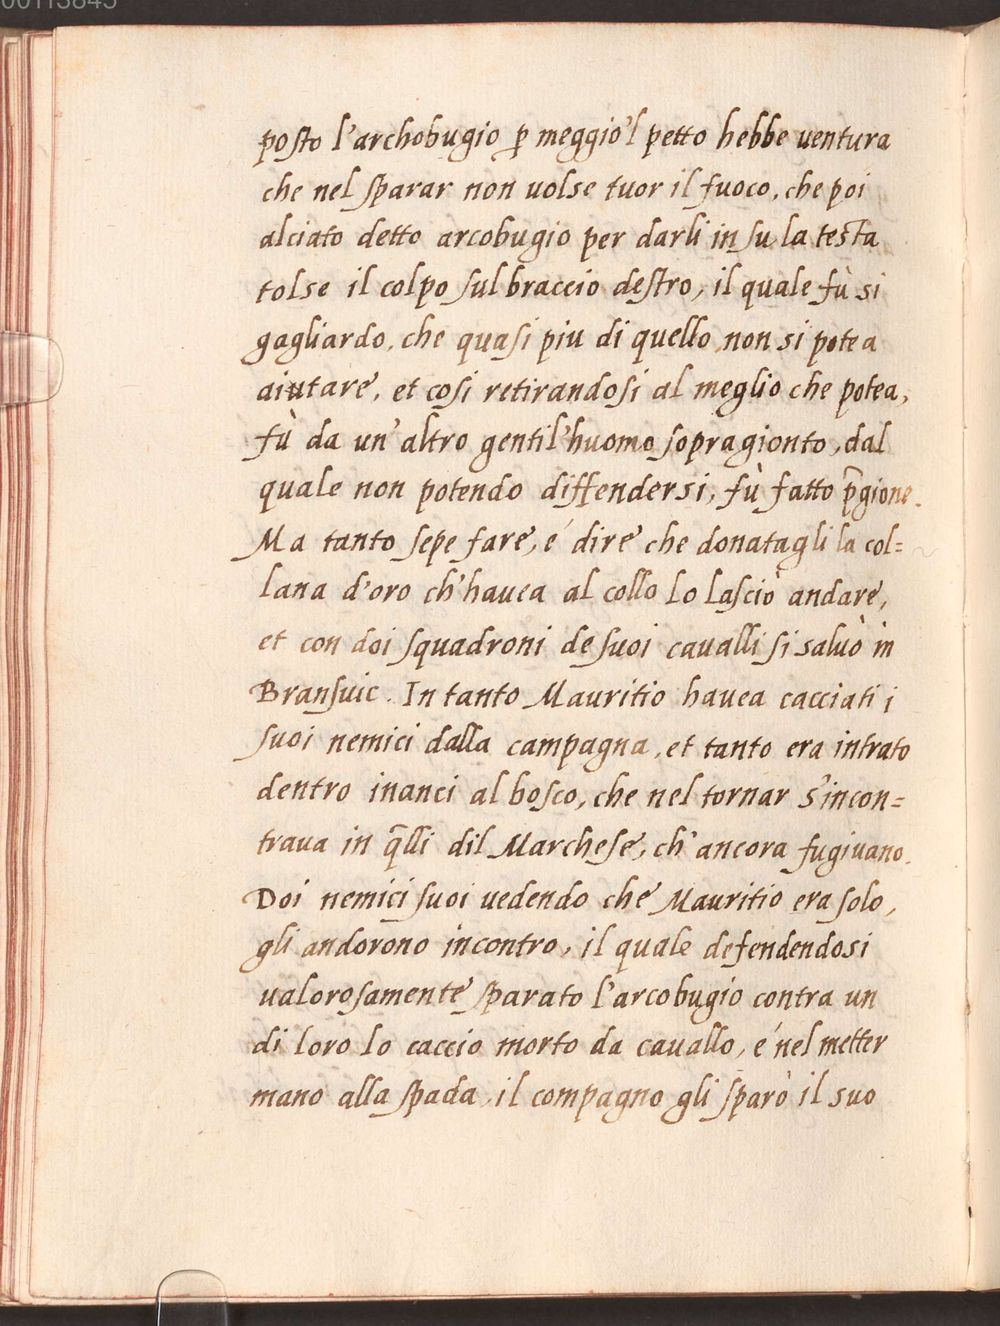 posto l'archobugio ꝑ meggio'l petto hebbe ventura
che nel sparar non uolse tuor il fuoco, che poi
alciato detto arcobugio per darli in su la testa
tolse il colpo sul braccio destro, il quale fù si
gagliardo, che quasi piu di quello non si potea
aiutare, et cosi retirandosi al meglio che potea,
fù da un'altro gentil'huomo sopragionto, dal
quale non potendo diffendersi, fù fatto p̄gione.
Ma tanto sepe fare, é dire che donatagli la col=
lana d'oro ch'hauea al collo lo lasciò andare,
et con doi squadroni de suoi caualli si saluò in
Bransuic. In tanto Mauritio hauea cacciati i
suoi nemici dalla campagna, et tanto era intrato
dentro inanci al bosco, che nel tornar s'incon=
traua in q̄lli dil Marchese, ch'ancora fugiuano.
Doi nemici suoi uedendo che Mauritio era solo,
gli andorono incontro, il quale defendendosi
ualorosamente sparato l'arcobugio contra un
di loro lo caccio morto da cauallo, é nel metter
mano alla spada, il compagno gli sparò il suo